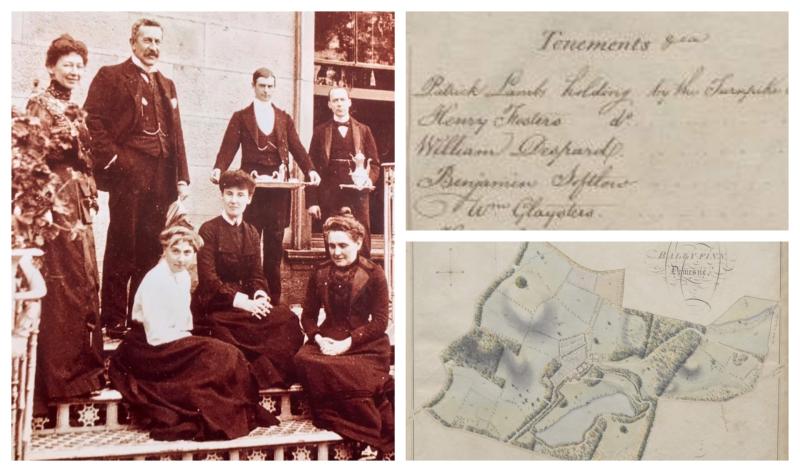 Tenements &ca
Patrick Lambs holding by the Turnpike
Henry Fosters do.
William Despard
Benjamin Softlow
Wm Glaysters.
BALLYFINN
Demesne,